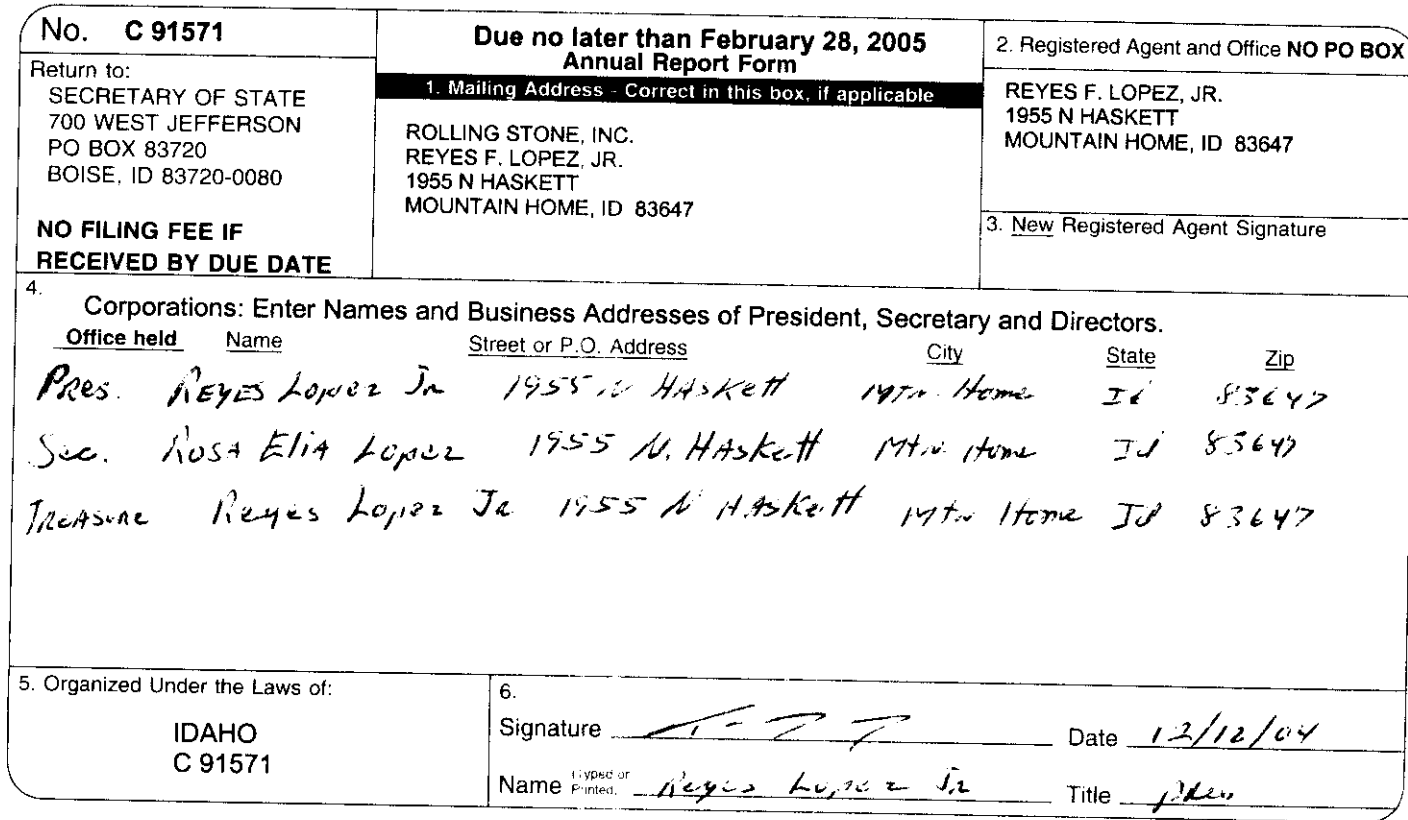 No. C 91571
Return to:
SECRETARY OF STATE
700 WEST JEFFERSON
PO BOX 83720
BOISE, ID 83720-0080
NO FILING FEE IF
RECEIVED BY DUE DATE
Due no later than February 28, 2005
Annual Report Form
1. Mailing Address - Correct in this box, if applicable
ROLLING STONE, INC.
REYES F. LOPEZ, JR.
1955 N HASKETT
MOUNTAIN HOME, ID 83647
2. Registered Agent and Office NO PO BOX
REYES F. LOPEZ, JR.
1955 N HASKETT
MOUNTAIN HOME, ID 83647
3. New Registered Agent Signature
4.
Corporations: Enter Names and Business Addresses of President, Secretary and Directors.
Office held Name Street or P.O. Address City State Zip
Pres. Reyes Lopez Jr 1955 N Haskett Mtn. Home Id 83647
Sec. Rosa Elia Lopez 1955 N. Haskett Mtn. Home Id 83647
Treasure Reyes Lopez Jr 1955 N Haskett Mtn Home Id 83647
5. Organized Under the Laws of:
IDAHO
C 91571
6.
Signature Date 12/12/04
Name (Typed or Printed) Reyes Lopez Jr Title Pres